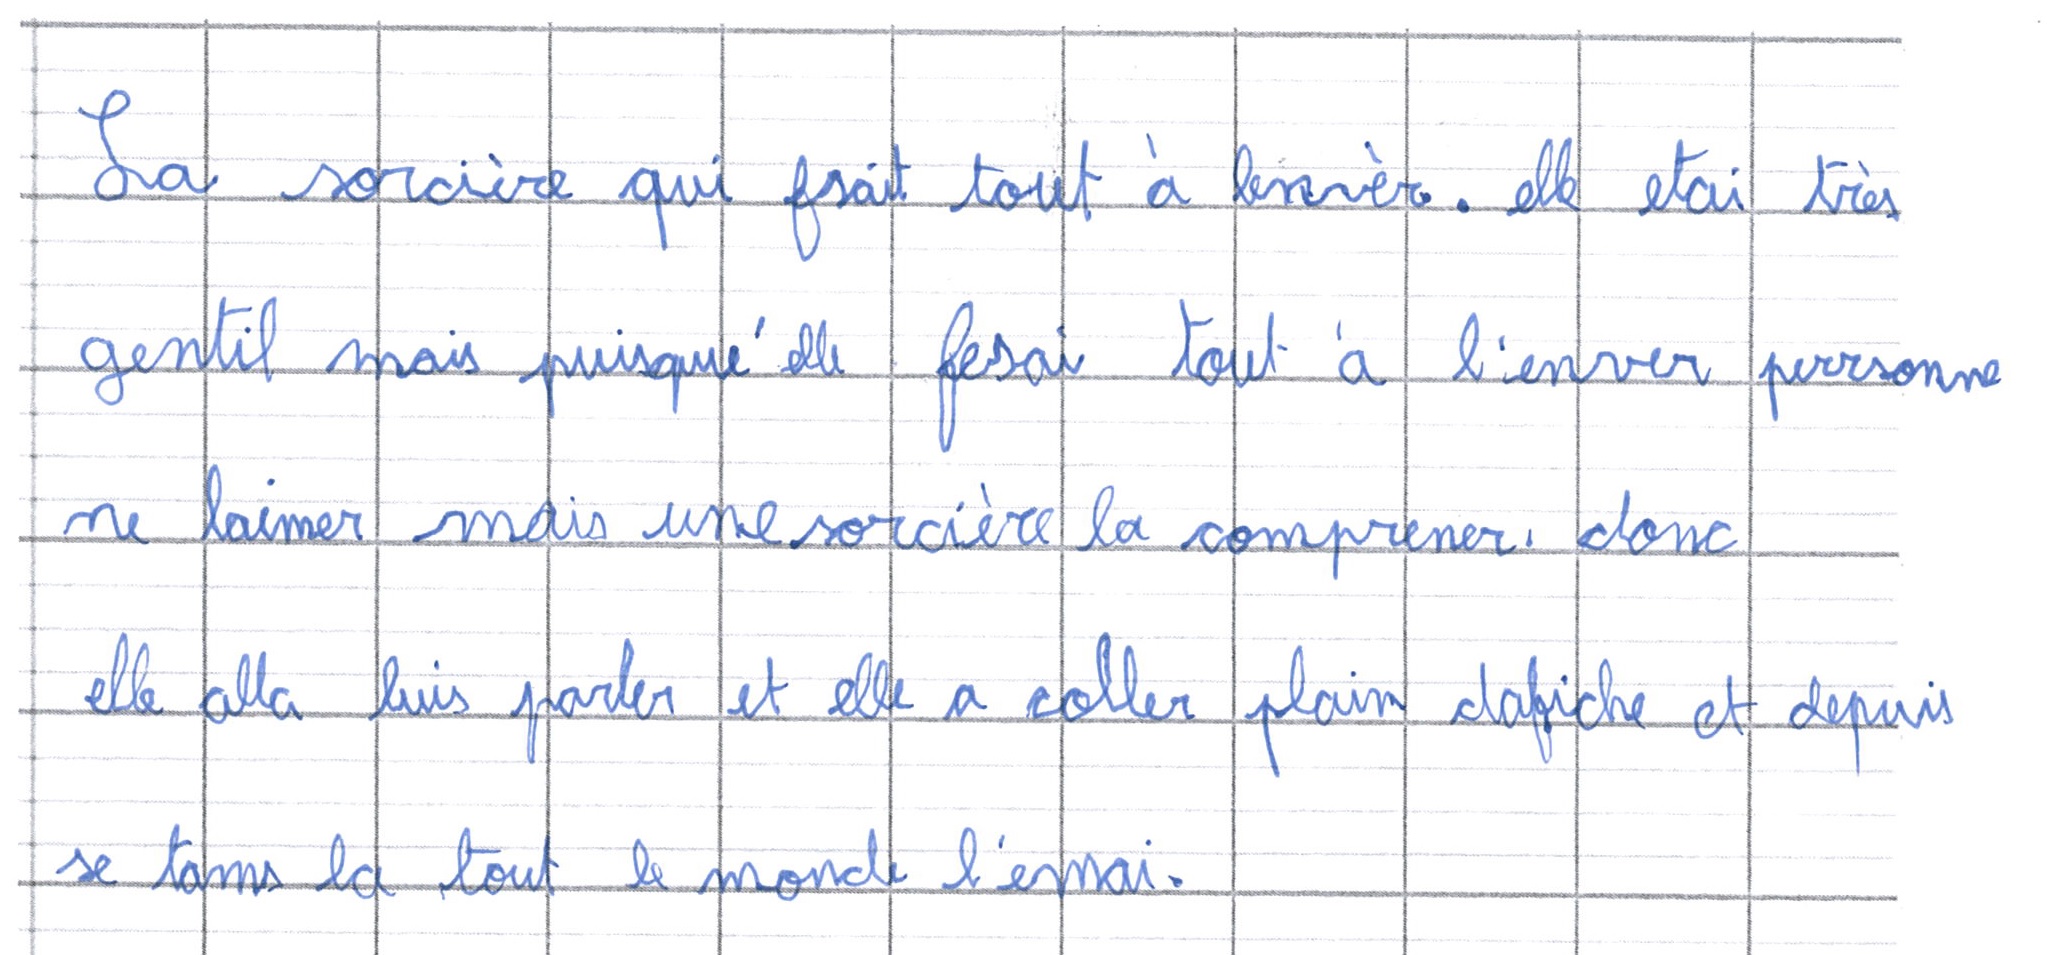 La sorcière qui fsait tout à lenvèr. elle etai très
gentil mais puisqué'elle fesai tout à l'enver perrsonne
ne laimer mais une sorcière la comprener. donc
elle alla luis parler et elle a coller plain dafiche et depuis
se tams la tout le monde l'emai.